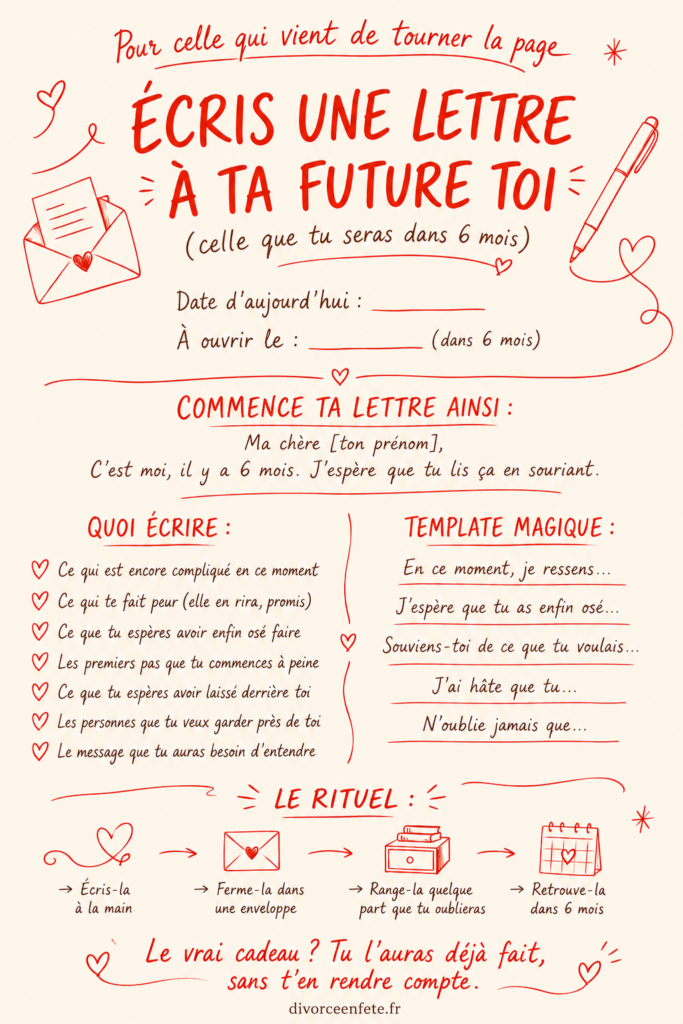 Pour celle qui vient de tourner la page
ÉCRIS UNE LETTRE
À TA FUTURE TOI
(celle que tu seras dans 6 mois)
Date d'aujourd'hui : ______
À ouvrir le : ______ (dans 6 mois)
COMMENCE TA LETTRE AINSI :
Ma chère [ton prénom],
C'est moi, il y a 6 mois. J'espère que tu lis ça en souriant.
QUOI ÉCRIRE :
Ce qui est encore compliqué en ce moment
Ce qui te fait peur (elle en rira, promis)
Ce que tu espères avoir enfin osé faire
Les premiers pas que tu commences à peine
Ce que tu espères avoir laissé derrière toi
Les personnes que tu veux garder près de toi
Le message que tu auras besoin d'entendre
TEMPLATE MAGIQUE :
En ce moment, je ressens...
J'espère que tu as enfin osé...
Souviens-toi de ce que tu voulais...
J'ai hâte que tu...
N'oublie jamais que...
LE RITUEL :
→ Écris-la
à la main
→ Ferme-la dans
une enveloppe
→ Range-la quelque
part que tu oublieras
→ Retrouve-la
dans 6 mois
Le vrai cadeau ? Tu l'auras déjà fait,
sans t'en rendre compte.
divorceenfete.fr